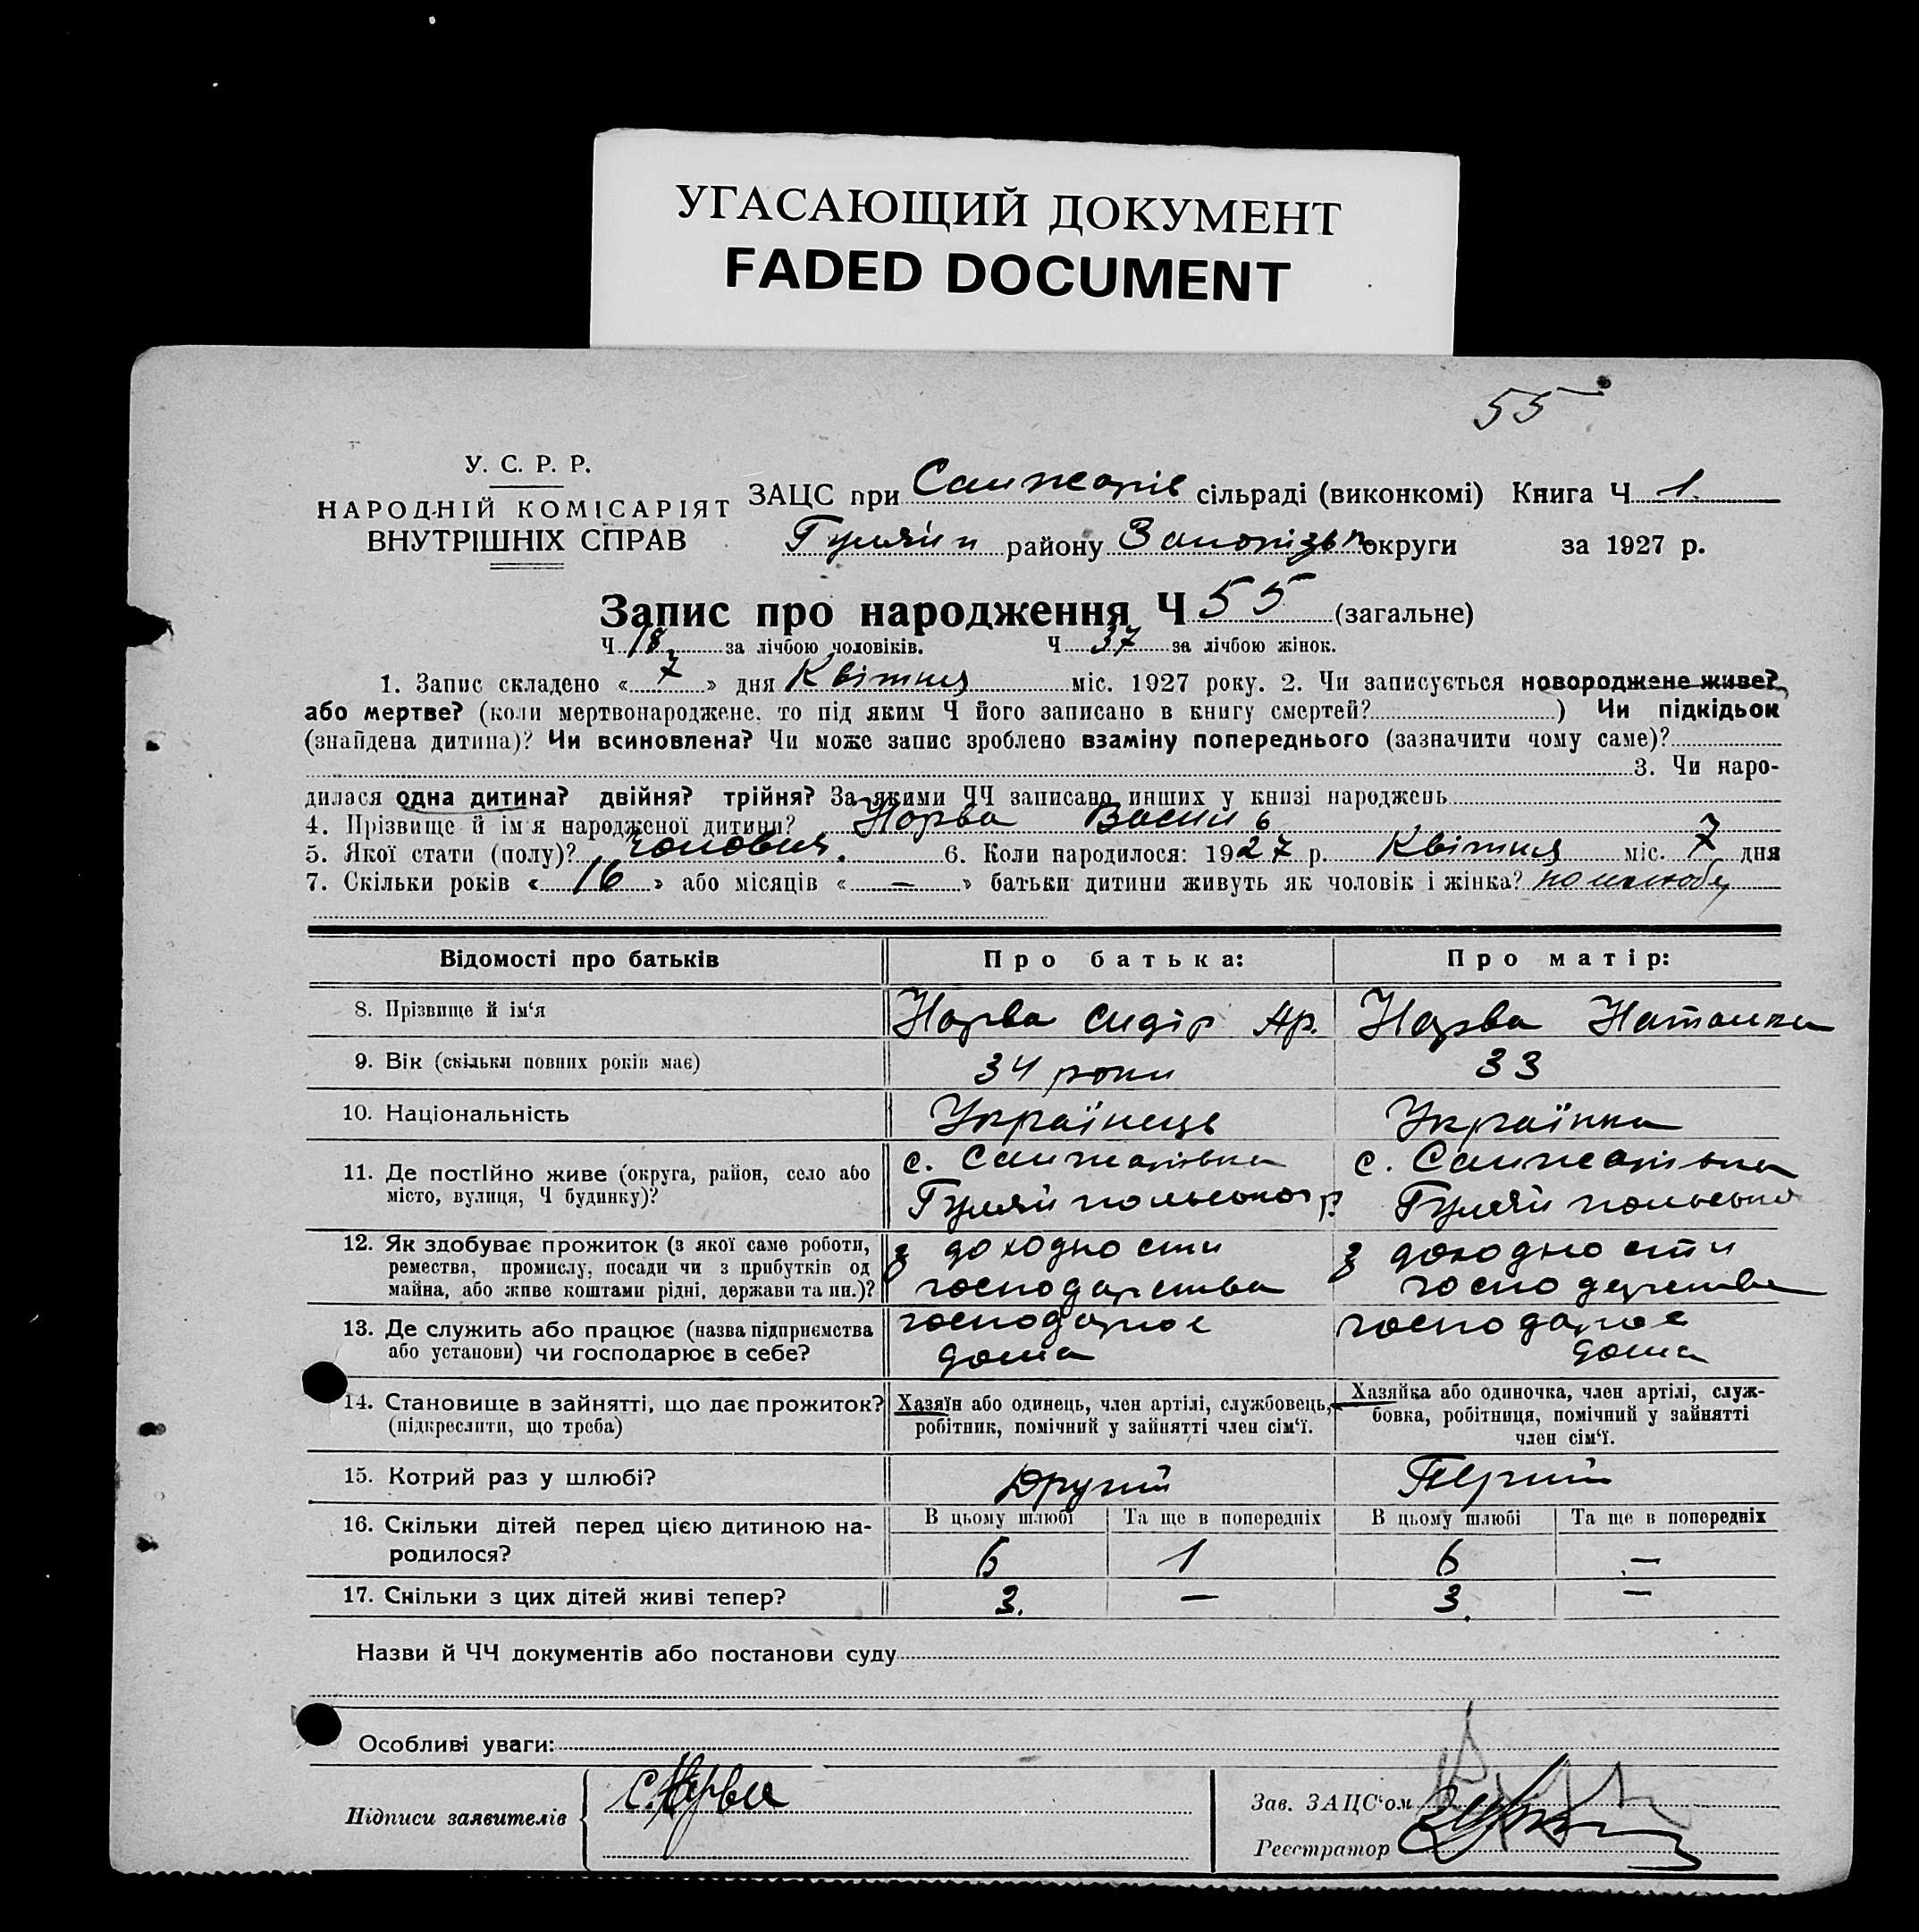 УГАСАЮЩИЙ ДОКУМЕНТ
FADED DOCUMENT
55
У. С. Р. Р.
НАРОДНІЙ КОМІСАРІЯТ
ВНУТРІШНІХ СПРАВ
ЗАЦС при Санжарів сільраді (виконкомі) Книга Ч 1.
Гуляй п району Запорізьк округи за 1927 р.
Запис про народження Ч 55 (загальне)
Ч 18 за лічбою чоловіків. Ч 37 за лічбою жінок.
1. Запис складено « 7 » дня Квітня міс. 1927 року. 2. Чи записується новороджене живе?
або мертве? (коли мертвонароджене, то під яким Ч його записано в книгу смертей? ) Чи підкідьок
(знайдена дитина)? Чи всиновлена? Чи може запис зроблено взаміну попереднього (зазначити чому саме)?
3. Чи наро-
дилася одна дитина? двійня? трійня? За якими ЧЧ записано инших у книзі народжень
4. Прізвище й ім'я народженої дитини? Нарва Василь
5. Якої стати (полу)? Чоловіч. 6. Коли народилося: 1927 р. Квітня міс. 7 дня
7. Скільки років « 16 » або місяців « — » батьки дитини живуть як чоловік і жінка? по шлюбу
Відомості про батьків Про батька: Про матір:
8. Прізвище й ім‘я Нарва Сидір Ар. Нарва Наталка
9. Вік (скільки повних років має) 34 роки 33
10. Національність Українець Українка
11. Де постійно живе (округа, район, село або с. Санжарівка с. Санжарівка
місто, вулиця, Ч будинку)? Гуляйпольського р. Гуляйпольсько
12. Як здобуває прожиток (з якої саме роботи, з доходности з доходности
ремества, промислу, посади чи з прибутків од
майна, або живе коштами рідні, держави та ин.)? господарства господарства
13. Де служить або працює (назва підприємства господарює господарює
або установи) чи господарює в себе? дома дома
14. Становище в зайнятті, що дає прожиток? Хазяїн або одинець, член артілі, службовець, Хазяйка або одиночка, член артілі, служ-
(підкреслити, що треба) робітник, помічний у зайнятті член сім‘ї. бовка, робітниця, помічний у зайнятті
член сім‘ї.
15. Котрий раз у шлюбі? Другий Перший
16. Скільки дітей перед цією дитиною на- В цьому шлюбі Та ще в попередніх В цьому шлюбі Та ще в попередніх
родилося? 6 1 6 —
17. Скільки з цих дітей живі тепер? 3. — 3. —
Назви й ЧЧ документів або постанови суду
Особливі уваги:
Підписи заявителів С. Нарва
Зав. ЗАЦС‘ом
Реєстратор